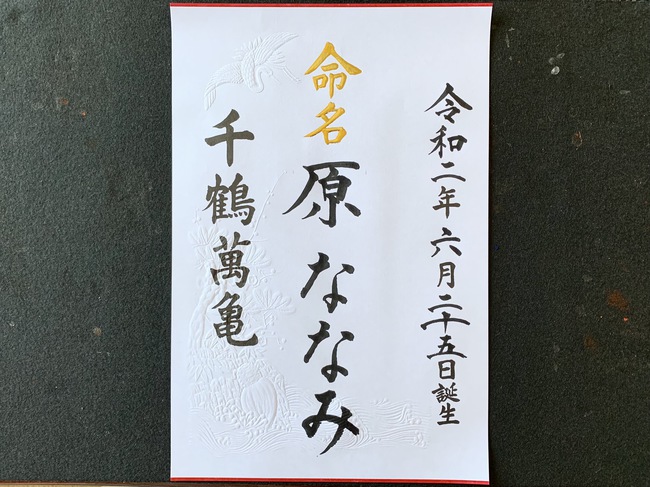 令和二年 六月二十五日誕生
命名 原 ななみ
千鶴萬亀